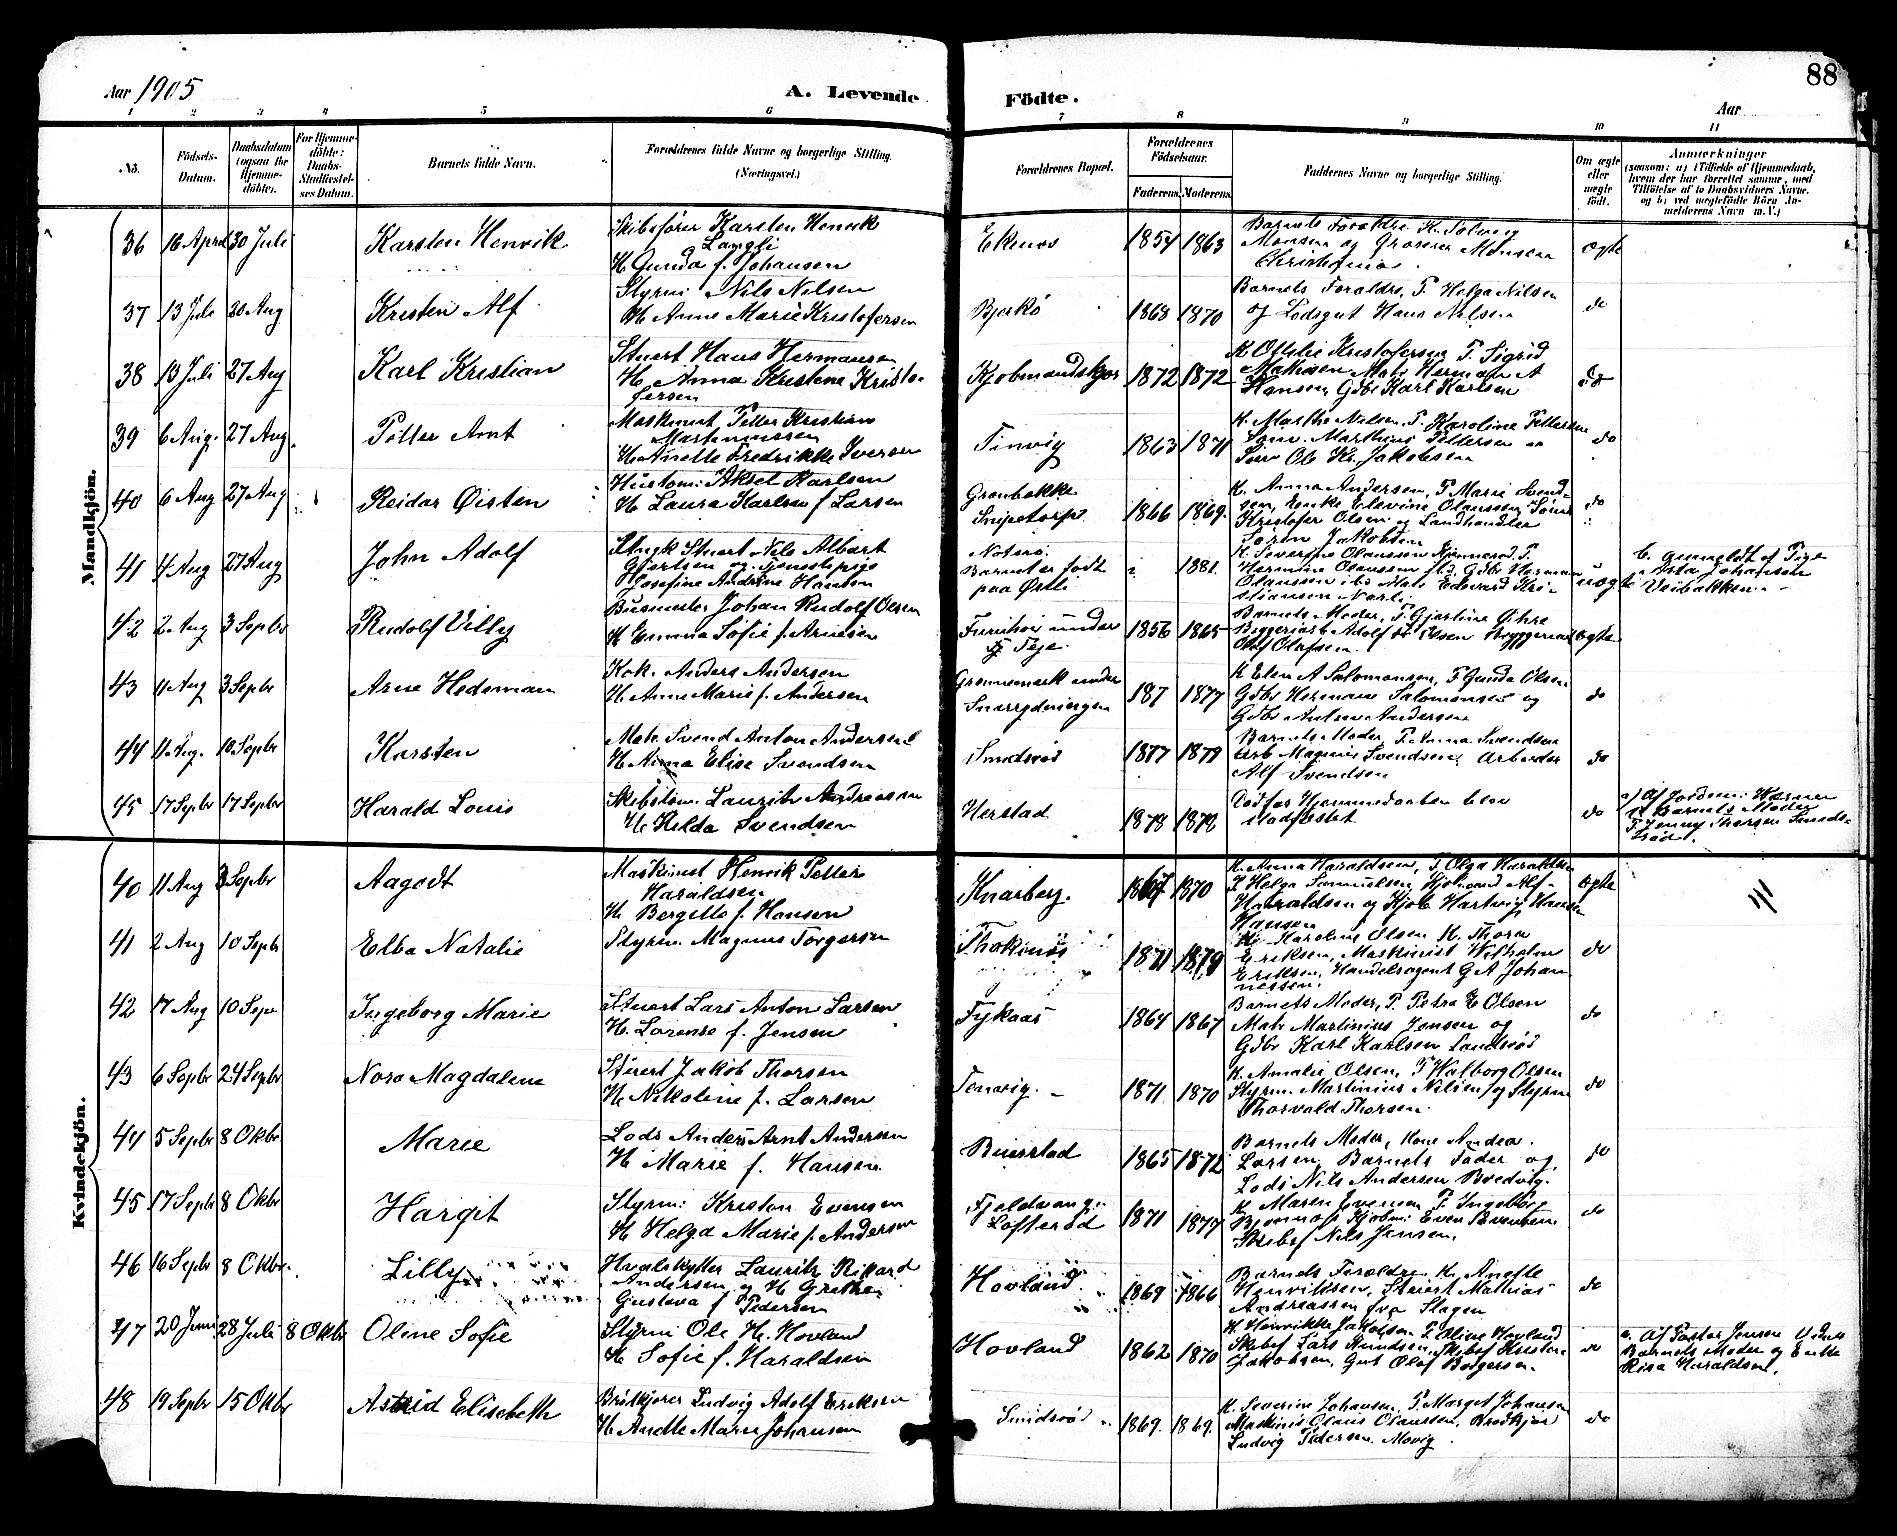 88
Aar 1905
A. Levende Födte.
Aar
1 2 3 4 5 6 7 8 9 10 11
No.
Födsels-Datum.
Daabsdatum (ogsaa for Hjemmedöbte).
For Hjemmedöbte: Daabs-Stadfæstelses Datum.
Barnets fulde Navn.
Forældrenes fulde Navne og borgerlige Stilling.
(Næringsvei.)
Forældrenes Bopæl.
Forældrenes Födselsaar.
Faderens. Moderens.
Faddernes Navne og borgerlige Stilling.
Om ægte eller uægte født.
Anmærkninger
(saasom: a) i Tilfælde af Hjemmedaab, hvem der har forrettet samme, med Tilföielse af to Daabsvidners Navne. og b) ved uægtefödte Börn Anmelderens Navn m. V.)
Mandkjön.
36 16 April 30 Juli Karsten Henrik
Skibsfører Karsten Henrik
Langli
H. Gunda f. Johansen
Ekenes 1854 1863
Barnets Forældre K. Solveig
Monsen og Grosserer Monsen
Christiania
ægte
37 13 Juli 20 Aug Kristen Alf
Styrm. Nils Nilsen
H. Anne Marie Kristofersen
Bjerkö 1868 1870
Barnets Forældre, P. Helga Nilsen
og Lodsgut Hans Nilsen
do
38 13 Juli 27 Aug Karl Kristian
Stuert Hans Hermansen
H. Anna Kristine Kristo-
fersen
Kjobmandskjær 1872 1872
K Otilie Kristofersen P. Sigrid
Mathisen Matr Herman A
Hansen, Gdbr Karl Karlsen
do
39 6 Aug. 27 Aug. Petter Arnt
Maskinist Petter Kristian
Martinussen
H. Anette Fredrikke Iversen
Tinvig 1863 1871
K. Marthe Nilsen, P. Karoline Pettersen
Marthins Pettersen
Ole Kr. Jakobsen
do
40 6 Aug 27 Aug Reidar Øisten
Hustom. Aksel Karlsen
H. Laura Karlsen f Larsen
Grønbakke
Snipetorp 1866 1869.
K. Anna Andersen, P Marie Svend-
sen, Enke Elevine Olaussen
Kristofer Olsen og Landhandler
Søren Jakobsen
do
41 4 Aug 27 Aug John Adolf
Stuert Nils Albert
Gjertsen og Tjenestepige
Josefine Andrine Hansen
Noterö.
Barnet er født
paa Ørsli
1881.
K. Severine Olaussen P.
Hermine Olaussen ibd. Gdbr Herman
Olaussen ibd Matr Edevard Kri-
stiansen
uægte
b. anmeldt af Pige
Asta Johansen
Veibakken.
42 2 Aug 3 Septbr Rudolf Villy
Busmester Johan Rudolf Olsen
H Emma Sofie f. Arnesen
Furuhöi under
Teje. 1856 1865
Barnets Moder, P. Gjertine Gihre
Byggeriarb Adolf Olsen Bryggeriarb
Olaf Olafsen.
ægte
43 11 Aug 3 Septbr Arne Hedeman
Kok. Anders Andersen
H. Anne Marie f. Andersen
Grønnemark under
187 1877
K Elen A Salomonsen, P Gunda Olsen
Gdbr Herman Salomonsen og
Gdbr Anton Andersen
do
44 11 Aug. 10 Septbr Karsten
Matr. Svend Anton Andersen
H. Anna Elise Svendsen
Smidsrød 1877 1879
Barnets Moder, P. Anna Svendsen
Arb Magnus Svendsen, Arbeider
Alf Svendsen
do
45 17 Septbr 17 Septbr Harald Louis
Skibstøm. Lauritz Andreassen
H. Hilda Svendsen
Herstad 1878 1872
Död før Hjemmedaaben blev
stadfæstet
do
a) Af Jordem. Werner
V. Barnets Moder
P. Jenny Thorsen Smids-
röd.
Kvindekjön.
40 11 Aug 3 Septbr Aagodt
Maskinist Henrik Petter
Haraldsen
H. Bergitte f. Hansen
Knarberg. 1867 1870
K. Anna Haraldsen, P. Olga Haraldsen
P Helga Samuelsen, Kjobmand Alf
Haraldsen og Kjob Hartvig Hansen
Hansen
ægte
41 2 Aug 10 Septbr Elba Natalie
Styrm. Magnus Torgersen
1871 1879
K. Karoline Olsen K. Thora
Eriksen, Maskinist Wilhelm
Eriksen, Handelsagent G A Johan
nessen.
do
42 17 Aug 10 Sept Ingeborg Marie
Stuert Lars Anton Larsen
H. Lorense f. Jensen
Fykaas 1864 1867
Barnets Moder, P. Petra E Olsen
Matr Martinius Jensen og
Gdbr Karl Karlsen Smidsrød
do
43 6 Septbr 24 Septbr Nora Magdalene
Stuert Jakob Thorsen
H. Nikoline f. Larsen
Tenvig. 1871 1870
K. Amalie Olsen, P Walborg Olsen
Styrm. Martinius Nilsen og Styrm
Thorvald Thorsen.
do
44 5 Septbr 8 Oktbr Marie
Lods Anders Arnt Andersen
H Marie f. Hansen
Buerstad 1865 1872
Barnets Moder, Kone Andrea
Larsen, Barnets Fader og
Lods Nils Andersen Bredvig.
do
45 17 Septbr 8 Oktbr Hargit
Styrm: Kristen Evensen
H Helga Marie f. Andersen
Fjeldvang
Lofterød 1871 1877
K. Maren Evensen P. Ingeborg
Bjønnes, Kjobm: Even Evensen
Skibsf Nils Jensen.
do
46 16 Septbr 8 Oktbr. Lilly
Hvalskytter Lauritz Rikard
Andersen og H Grethe
Gustava f. Pedersen
Hovland 1869 1866
Barnets Forældre K. Anette
Henriksen, Stuert Mathias
Andreassen fra Slagen
do
47 20 Juni 28 Juli 8 Oktbr Oline Sofie
Styrm Ole H. Hovland
H Sofie f. Haraldsen
Hovland 1862 1870
K Henrikke Jakobsen P. Oline Hovland
Skibsf Lars Knudsen, Skibsf Kristen
Jakobsen, Gut Olaf Borgersen
do
a. Af Pastor Jensen Vidner
Barnets Moder og Enke
Risa Haraldsen.
48 19 Septbr 15 Oktbr Astrid Elisebeth
Brödkjører Ludvig Adolf Eriksen
H. Anette Marie Johansen
Smidsrød 1869. 1869.
K. Severine Johansen, P. Marget Johansen
Maskinis Olaus Olaussen, Brødkjør
Ludvig Pedersen, Movig
do